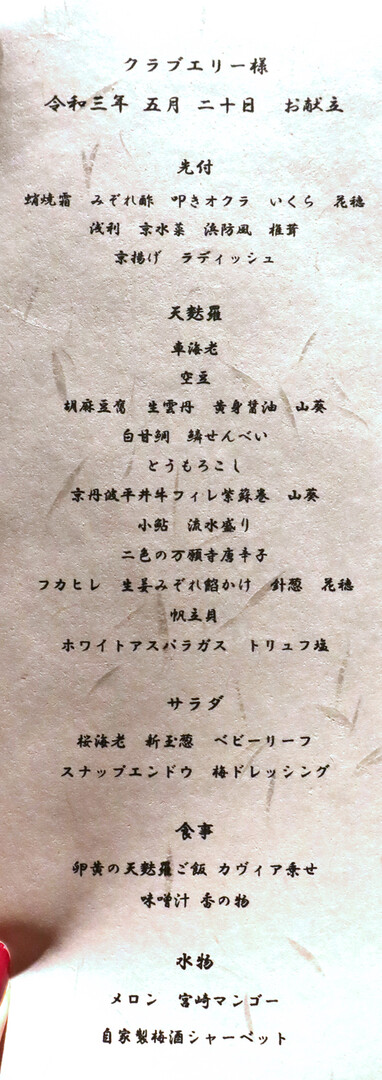 クラブエリー様
令和三年 五月 二十日 お献立
先付
蛸焼霜 みぞれ酢 叩きオクラ いくら 花穂
浅利 京水菜 浜防風 椎茸
京揚げ ラディッシュ
天麩羅
車海老
空豆
胡麻豆腐 生雲丹 黄身醤油 山葵
白甘鯛 鱗せんべい
とうもろこし
京丹波平井牛フィレ紫蘇巻 山葵
小鮎 流水盛り
二色の万願寺唐辛子
フカヒレ 生姜みぞれ餡かけ 針葱 花穂
帆立貝
ホワイトアスパラガス トリュフ塩
サラダ
桜海老 新玉葱 ベビーリーフ
スナップエンドウ 梅ドレッシング
食事
卵黄の天麩羅ご飯 カヴィア乗せ
味噌汁 香の物
水物
メロン 宮崎マンゴー
自家製梅酒シャーベット